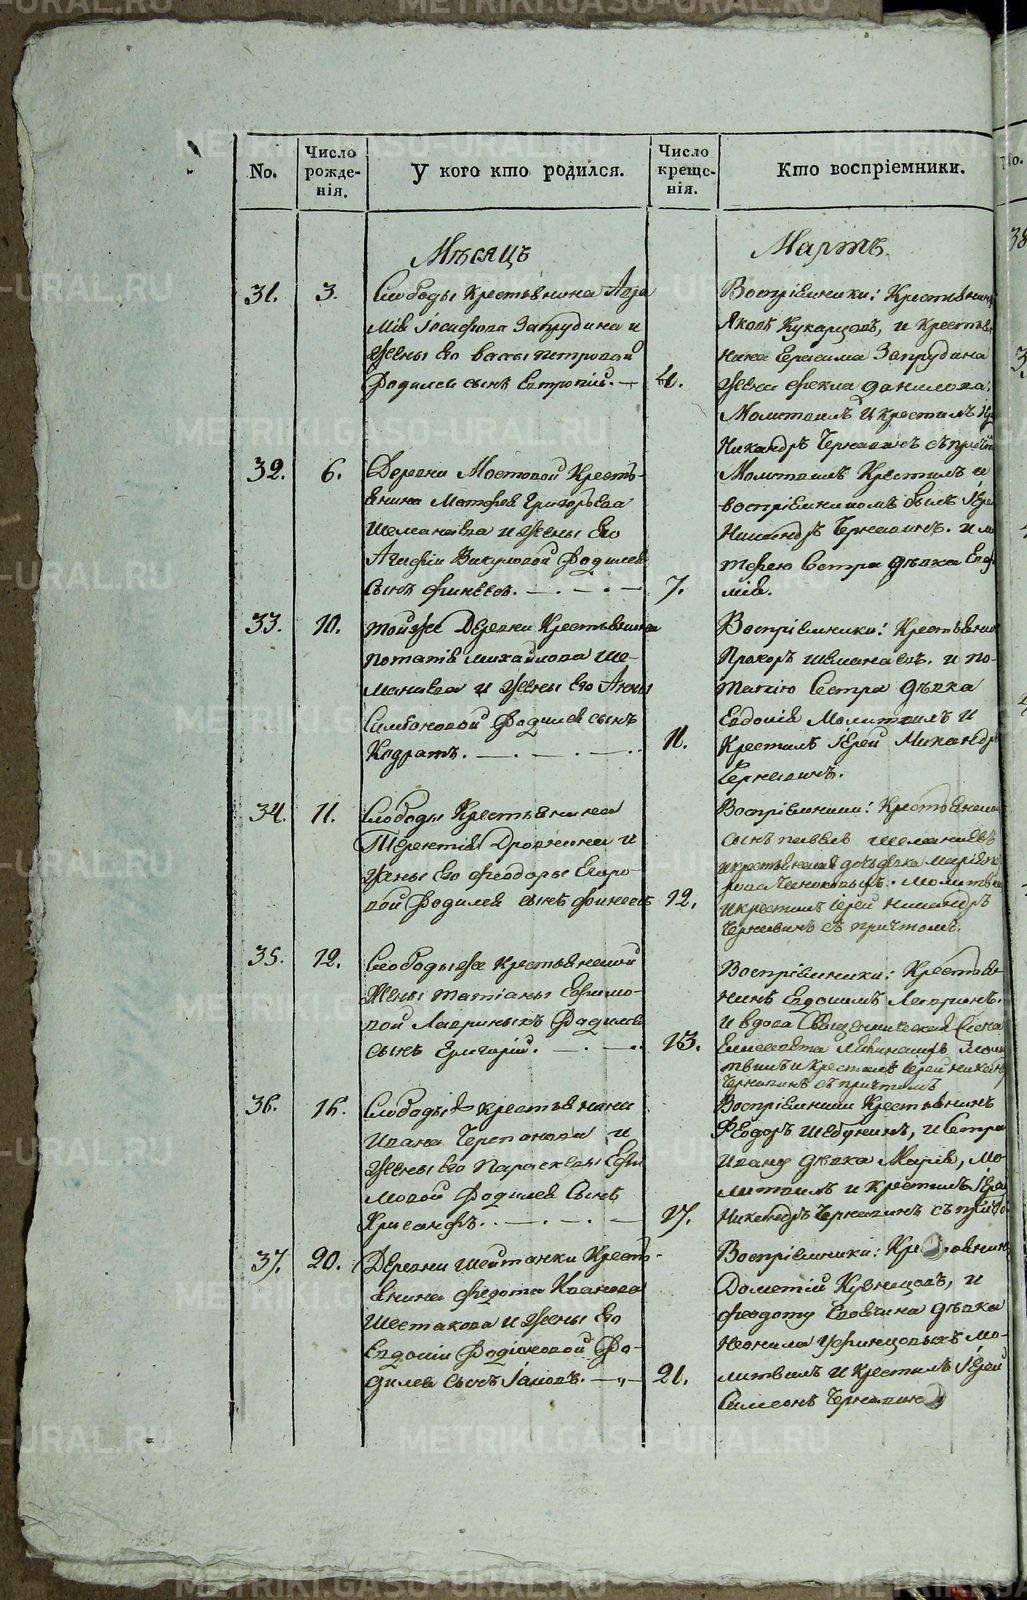 No.
Число рожде-нія.
У кого кто родился.
Число креще-нія.
Кто воспріемники.
Мѣсяцъ
Мартъ
31.
3.
Слободы Крестьянина
Іосифова Запрудина и
Жены Его Вассы Петровой
Родился сынъ Евтропій. —
4.
Воспріемники: Крестьянинъ
Яковъ Кукарцовъ, и Крестья
нина Герасима Запрудина
Жена Фекла Данилова.
Молитвилъ И Крестилъ
Никандръ Чернавинъ съ
32.
6.
Деревни Мостовой Кресть-
янина Матфея Григорьева
Шеманаева и Жены Его
Агафіи Викуловой Родился
Сынъ Финеесъ. —
7.
Молитвилъ Крестилъ и
воспріемникомъ былъ
Никандръ Чернавинъ. и
тфею Сестра Дѣвка
мія.
33.
10.
Тойже Деревни Крестьянина
Потапія Михайлова Ше-
манаева и Жены Его Анны
Симеоновой Родился сынъ
Кодратъ. —
11.
Воспріемники: Крестьянинъ
Прохоръ Шеманаевъ. и по-
тапію Сестра Дѣвка
Евдокія Молитвилъ и
Крестилъ Іерей Никандръ
Чернавинъ.
34.
11.
Слободы Крестьянина
Терентія Дровнина и
Жены Его Феодоры Егоро-
вой Родился сынъ Финеесъ
12.
Воспріемники:
сынъ Павелъ Шеманаевъ
и крестилъ Іерей Никандръ
Чернавинъ съ причтомъ.
35.
12.
Слободыже Крестьянской
Жены Татіаны Ефимо-
вой Лавриныхъ Родился
сынъ Григорій. —
13.
Воспріемники: Крестья-
нинъ Евдокимъ Лавринъ.
и вдова Священническая
Елисавета
твилъ и крестилъ Іерей
Чернавинъ съ причтомъ
36.
16.
Слободы Крестьянина
Ивана Черепанова и
Жены Его Параскевы
мовой Родился Сынъ
Хрисанфъ. —
17.
Воспріемники Крестьянинъ
Феодоръ Шебунинъ, и Сестра
Ивану Дѣвка Марія, мо-
литвилъ и Крестилъ
Никандръ Чернавинъ съ
37.
20.
Деревни Шайтанки Кресть-
янина Федота Иванова
Шестакова и Жены Его
Евдокіи Родіоновой Ро-
дился Сынъ Іаковъ. —
21.
Воспріемники:
Дометій Кузнецовъ, и
Феодоту дѣвка
Неонила мо-
литвилъ и Крестилъ Іерей
Симеонъ